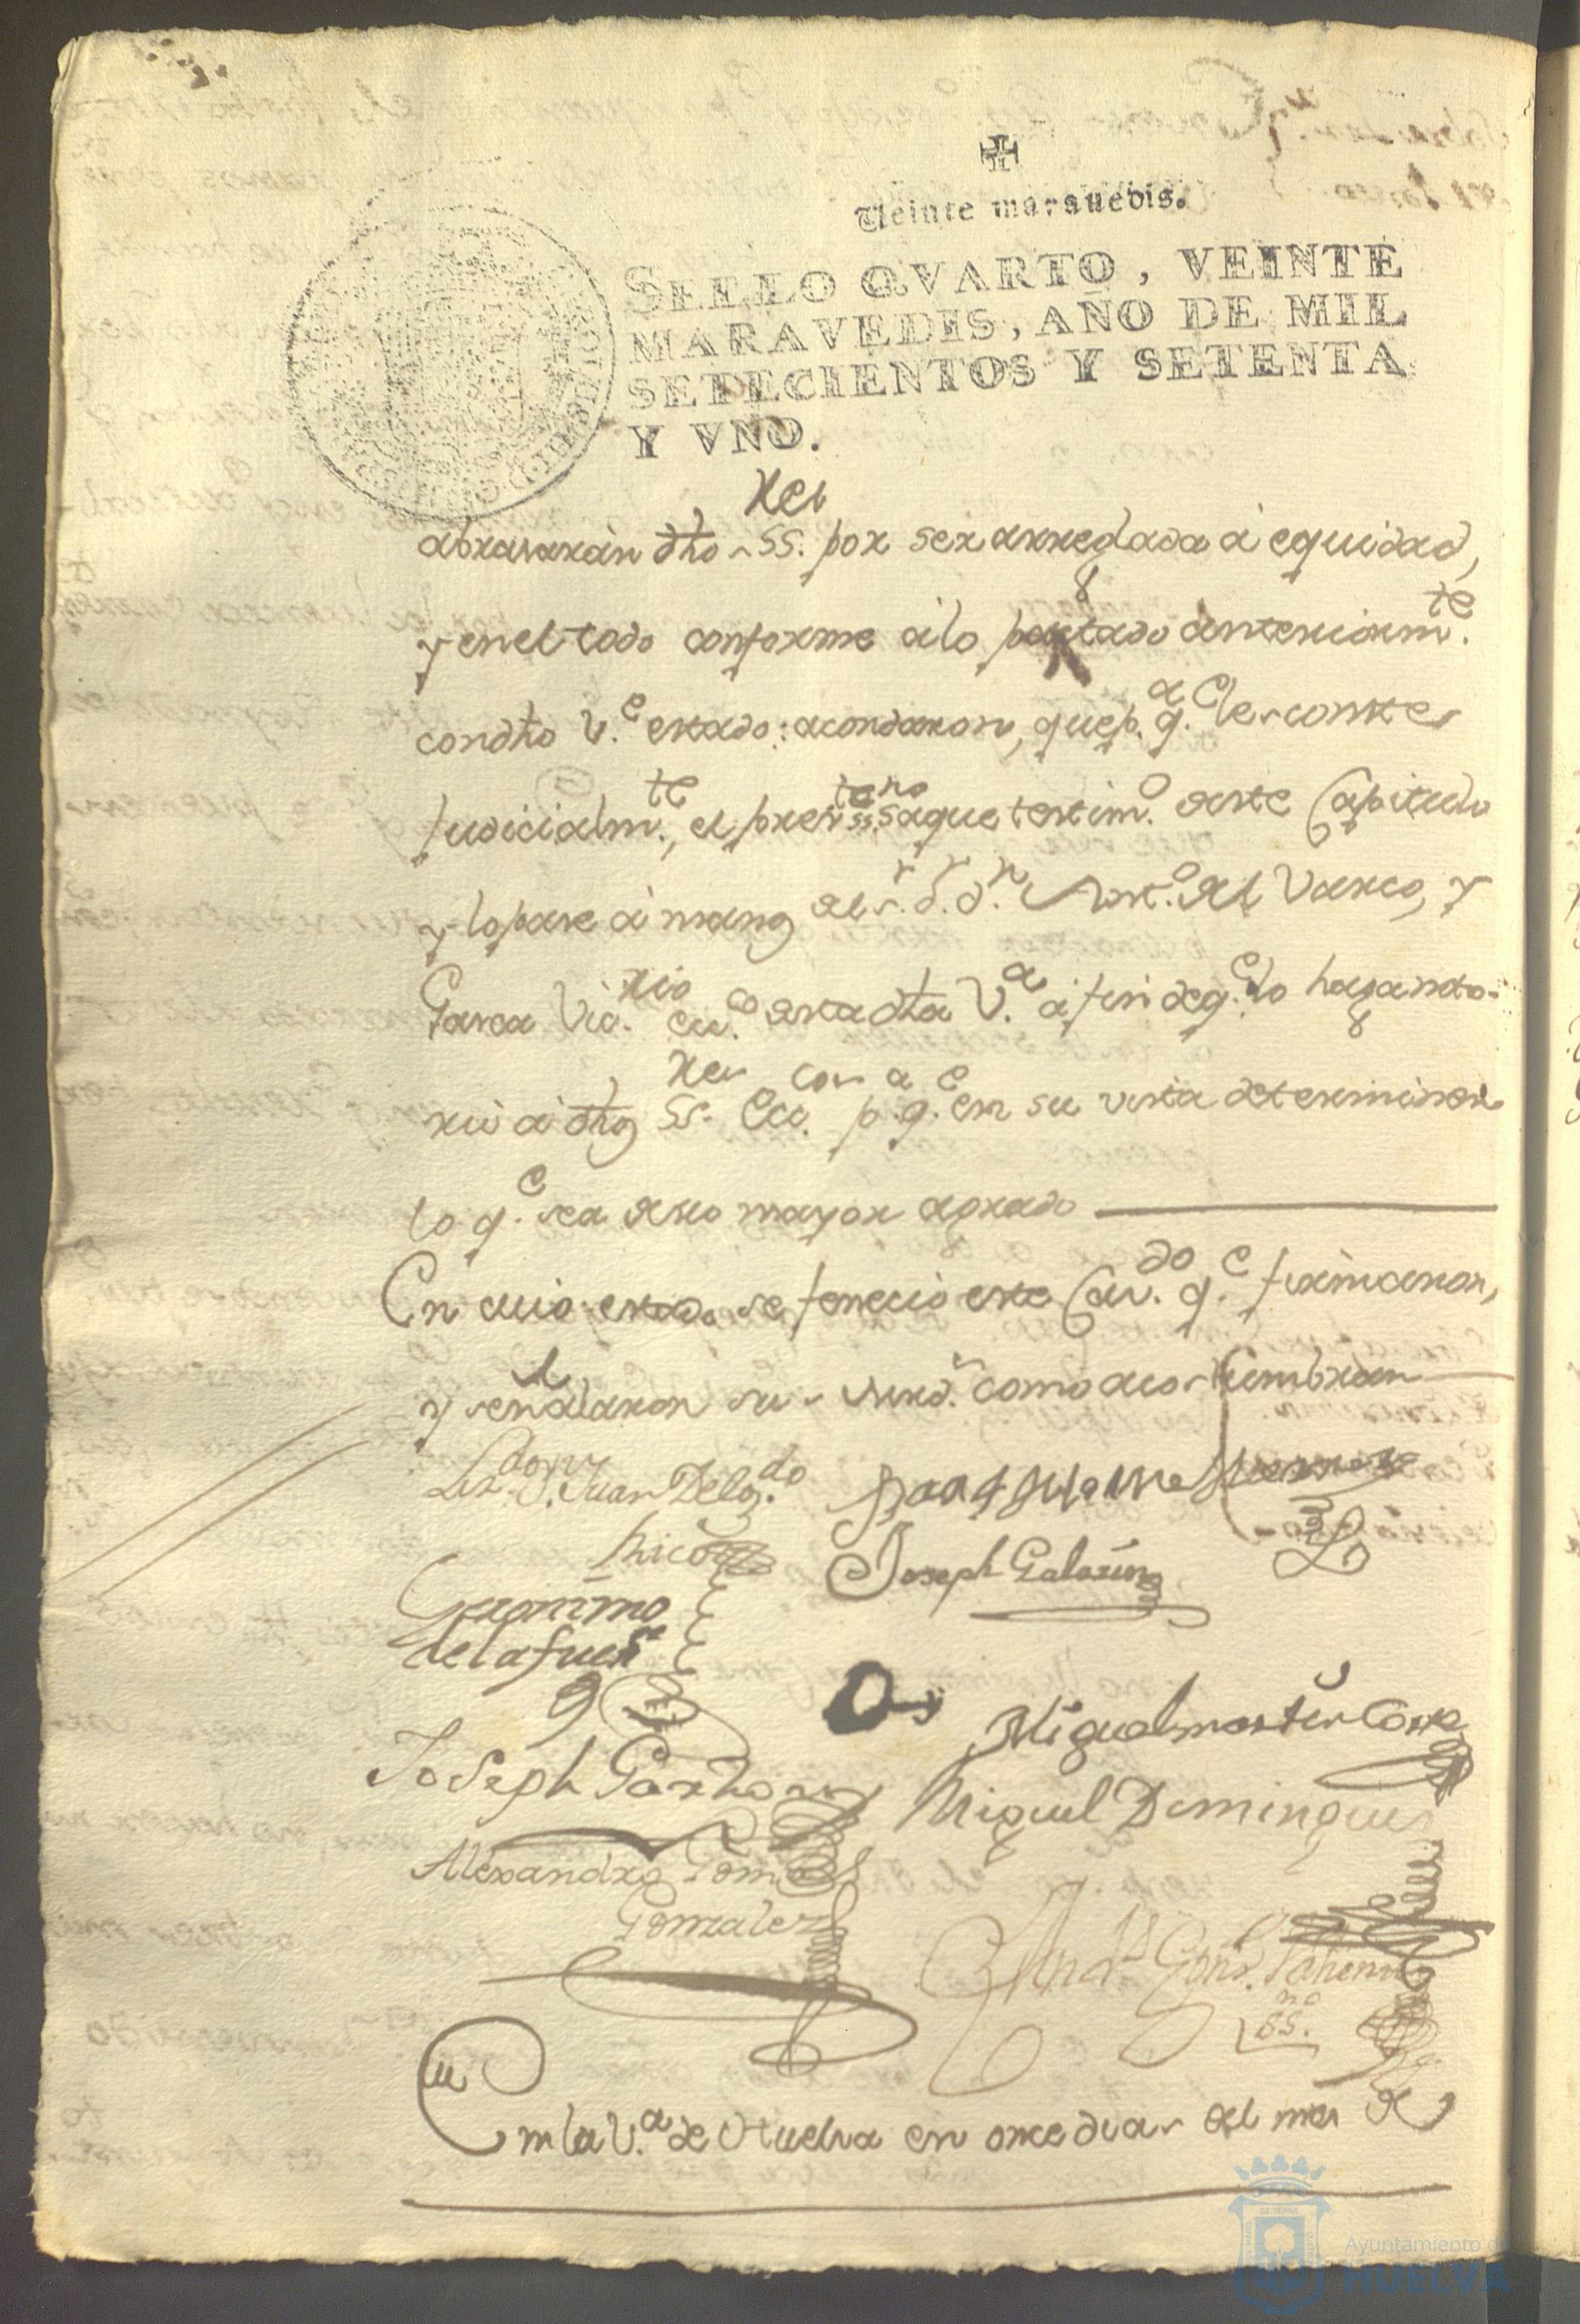 Veinte marauedis.
SELLO QVARTO, VEINTE
MARAVEDIS, AÑO DE MIL
SETECIENTOS Y SETENTA
Y VNO.
abrasaràn dho SS.res por ser arreglada à equidad,
y en el todo conforme à lo pactado anteriorm.te
con dho V.e estado: acordaron, que p.a q.e les conste
judicialm.te, el pres.te ss.no saque testim.o deste Capitulo
y lo pase à manos del s.r d.r d.n Ant.o del Varco, y
Gasca Vic.rio ecc.co desta dha V.a à fin de q.e lo haga noto-
rio à dhos SS.res Ecc.cos p.a q.e en su vista determinen
lo q.e sea desu mayor agrado
En cuio estado se fenecio este Cav.do q.e firmaron,
y señalaron sus mrds. como acostumbran
Liz.do D.n Juan Delg.do
Rico
Joseph Galarin
Geronimo
de la fuente
Miguel martin
Joseph Garzho
Miguel Dominguez
Alexandro Gomez
Gonzalez
ss.no
Cu
En la V.a de Huelva en once dias del mes de
Ayuntamiento de
HUELVA